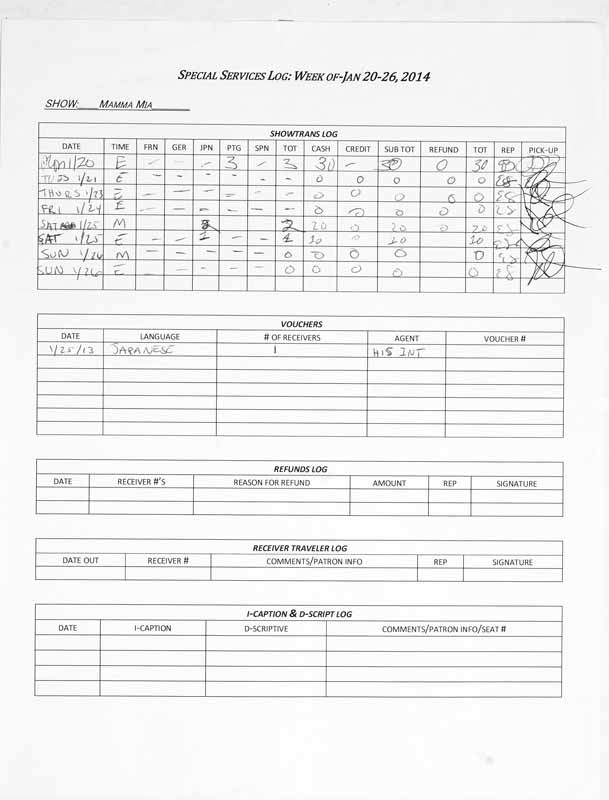 SPECIAL SERVICES LOG: WEEK OF-JAN 20-26, 2014
SHOW:____MAMMA MIA_______
SHOWTRANS LOG
DATE TIME FRN GER JPN PTG SPN TOT CASH CREDIT SUB TOT REFUND TOT REP PICK-UP
Mon 1/20 E – – – 3 – 3 30 – 30 0 30
TUES 1/21 E – – – – – – 0 0 0 0 0 EB
THURS 1/23 E – – – – – – 0 0 0 0 0 EB
FRI 1/24 E – – – – – – 0 0 0 0 0 EB
SAT 1/25 M – – – – 2 20 0 20 0 20 EB
SAT 1/25 E – – 1 – – 1 10 0 10 10 EB
SUN 1/26 M – – – – – 0 0 0 0 0 EB
SUN 1/26 E – – – – 0 0 0 0 0 EB
VOUCHERS
DATE LANGUAGE # OF RECEIVERS AGENT VOUCHER #
1/25/13 JAPANESE 1 HIS INT
REFUNDS LOG
DATE RECEIVER #'S REASON FOR REFUND AMOUNT REP SIGNATURE
RECEIVER TRAVELER LOG
DATE OUT RECEIVER # COMMENTS/PATRON INFO REP SIGNATURE
I-CAPTION & D-SCRIPT LOG
DATE I-CAPTION D-SCRIPTIVE COMMENTS/PATRON INFO/SEAT #